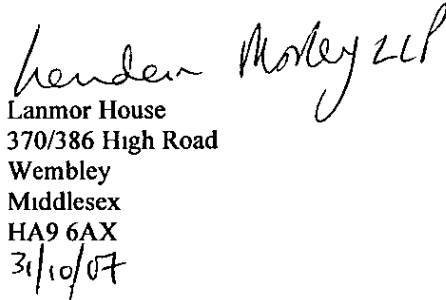 Landau Morley LLP
Lanmor House
370/386 High Road
Wembley
Middlesex
HA9 6AX
31/10/07